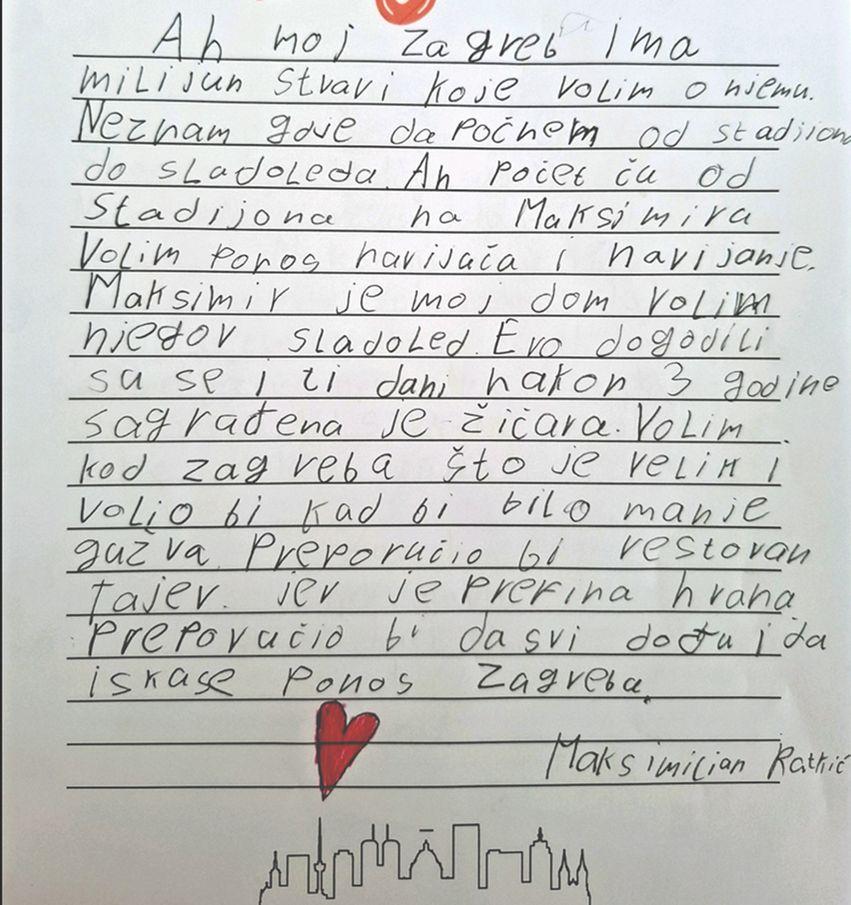 Ah moj Zagreb ima
milijun stvari koje volim o njemu.
Neznam gdje da počnem od stadiona
do sladoleda. Ah počet ću od
stadijona na Maksimiru
Volim ponos navijača i navijanje.
Maksimir je moj dom volim
njegov sladoled. Evo dogodili
su se i ti dani nakon 3 godine
sagrađena je žičara. Volim
kod zagreba što je velik i
volio bi kad bi bilo manje
gužva. Preporučio bi restoran
jer je prefina hrana
Preporučio bi da svi dođu i da
iskase Ponos Zagreba.
Maksimilian Ratkić